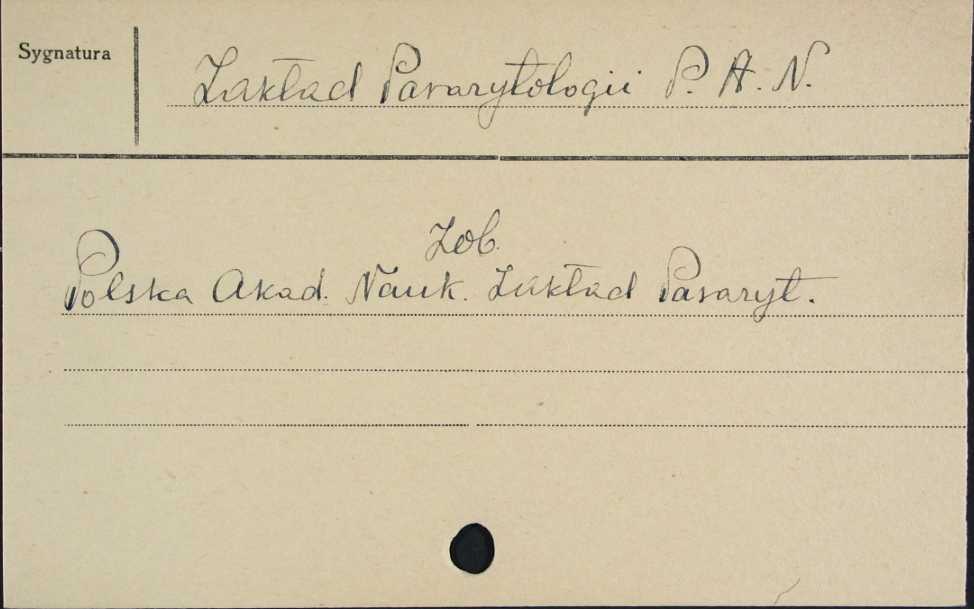 Sygnatura
Zakład Parazytologii P. A. N.
Zob.
Polska Akad. Nauk. Zakład Parazyt.